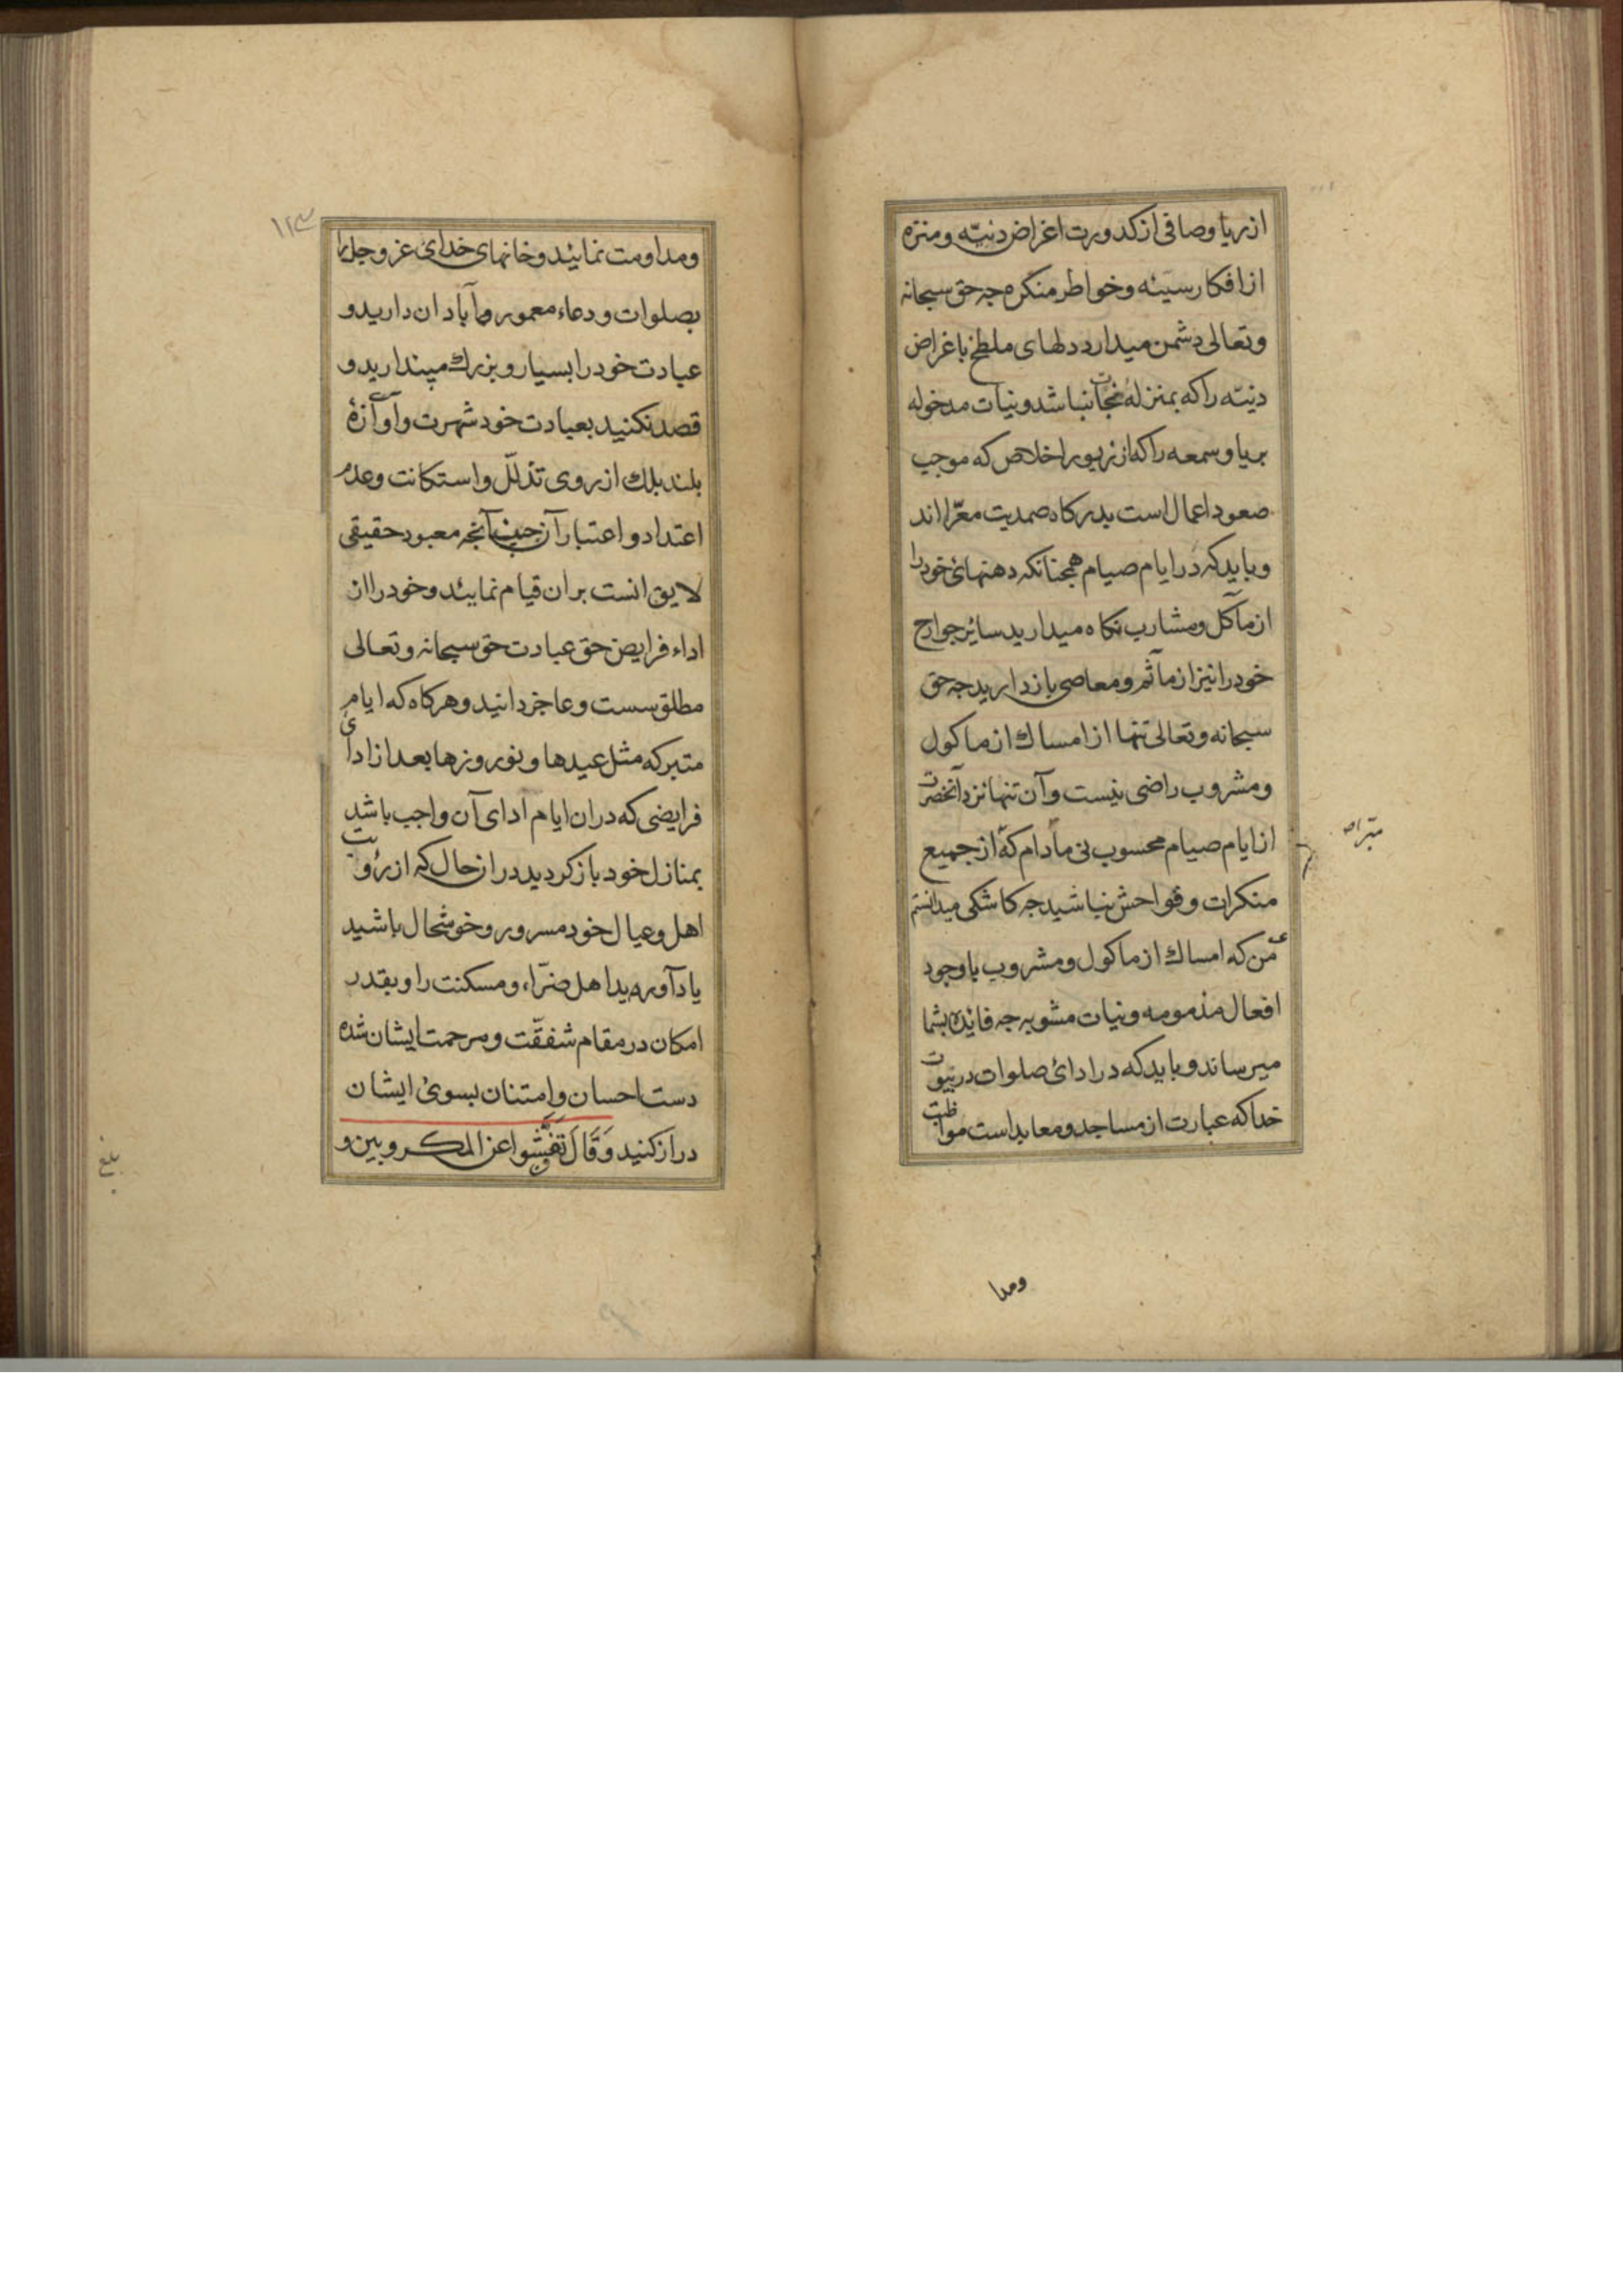 از ریا و صافی از کدورت اغراض دنیّه و منزه
از افکار سیئه و خواطر منکره جه حق سبحانه
وتعالی دشمن میدارد دلهای ملطخ باغراض
دنیّه را که بمنزلهٔ نجاسات باشد و نیات مدخوله
بریا و سمعه را که از زیور اخلاص که موجب
صعود اعمال است بدرکاه صمدیت معرّا اند
و باید که در ایام صیام همجنانکه دهنهائ خود را
از مآکل و مشارب نکاه میدارید سائر جوارح
خود را نیز از مآثم و معاصی باز دارید جه حق
سبحانه وتعالی تنها از امساك از ماکول
و مشروب راضی نیست و آن تنها نزد آنحضرت
از ایام صیام محسوب نی مادام که از جمیع
مبرا
منکرات و فواحش نباشید جه کاشکی میدانستم
من که امساك از ماکول و مشروب با وجود
افعال مذمومه و نیات مشوبه جه فائده بشما
میرساند و باید که در ادائ صلوات در بیوت
خدا که عبارت از مساجد و معابد است مواظبت
ومدا
۱۲۳
ومداومت نمائید و خانهای خدائ عز و جل را
بصلوات و دعاء معمور و آبادان دارید و
عبادت خود را بسیار و بزرك مپندارید و
قصد نکنید بعبادت خود شهرت و آوازهٔ
بلند بلك از روی تذلّل و استکانت و عدم
اعتداد و اعتبار آن جنانجه معبود حقیقی
لایق انست بران قیام نمائید و خود را از
اداء فرایض حق عبادت حق سبحانه وتعالی
مطلق سست و عاجز دانید و هرکاه که ایام
متبرکه مثل عیدها و نوروزها بعد از ادای
فرایضی که دران ایام ادای آن واجب باشد
بمنازل خود باز کردید در انحال که از رؤیت
اهل و عیال خود مسرور و خوشحال باشید
یاد آورید اهل ضرّاء و مسکنت را و بقدر
امکان در مقام شفقّت و مرحمت ایشان شده
دست احسان و امتنان بسوئ ایشان
دراز کنید وَقَالَ تَفَتِّشُوا عن المکروبین و
بلغ